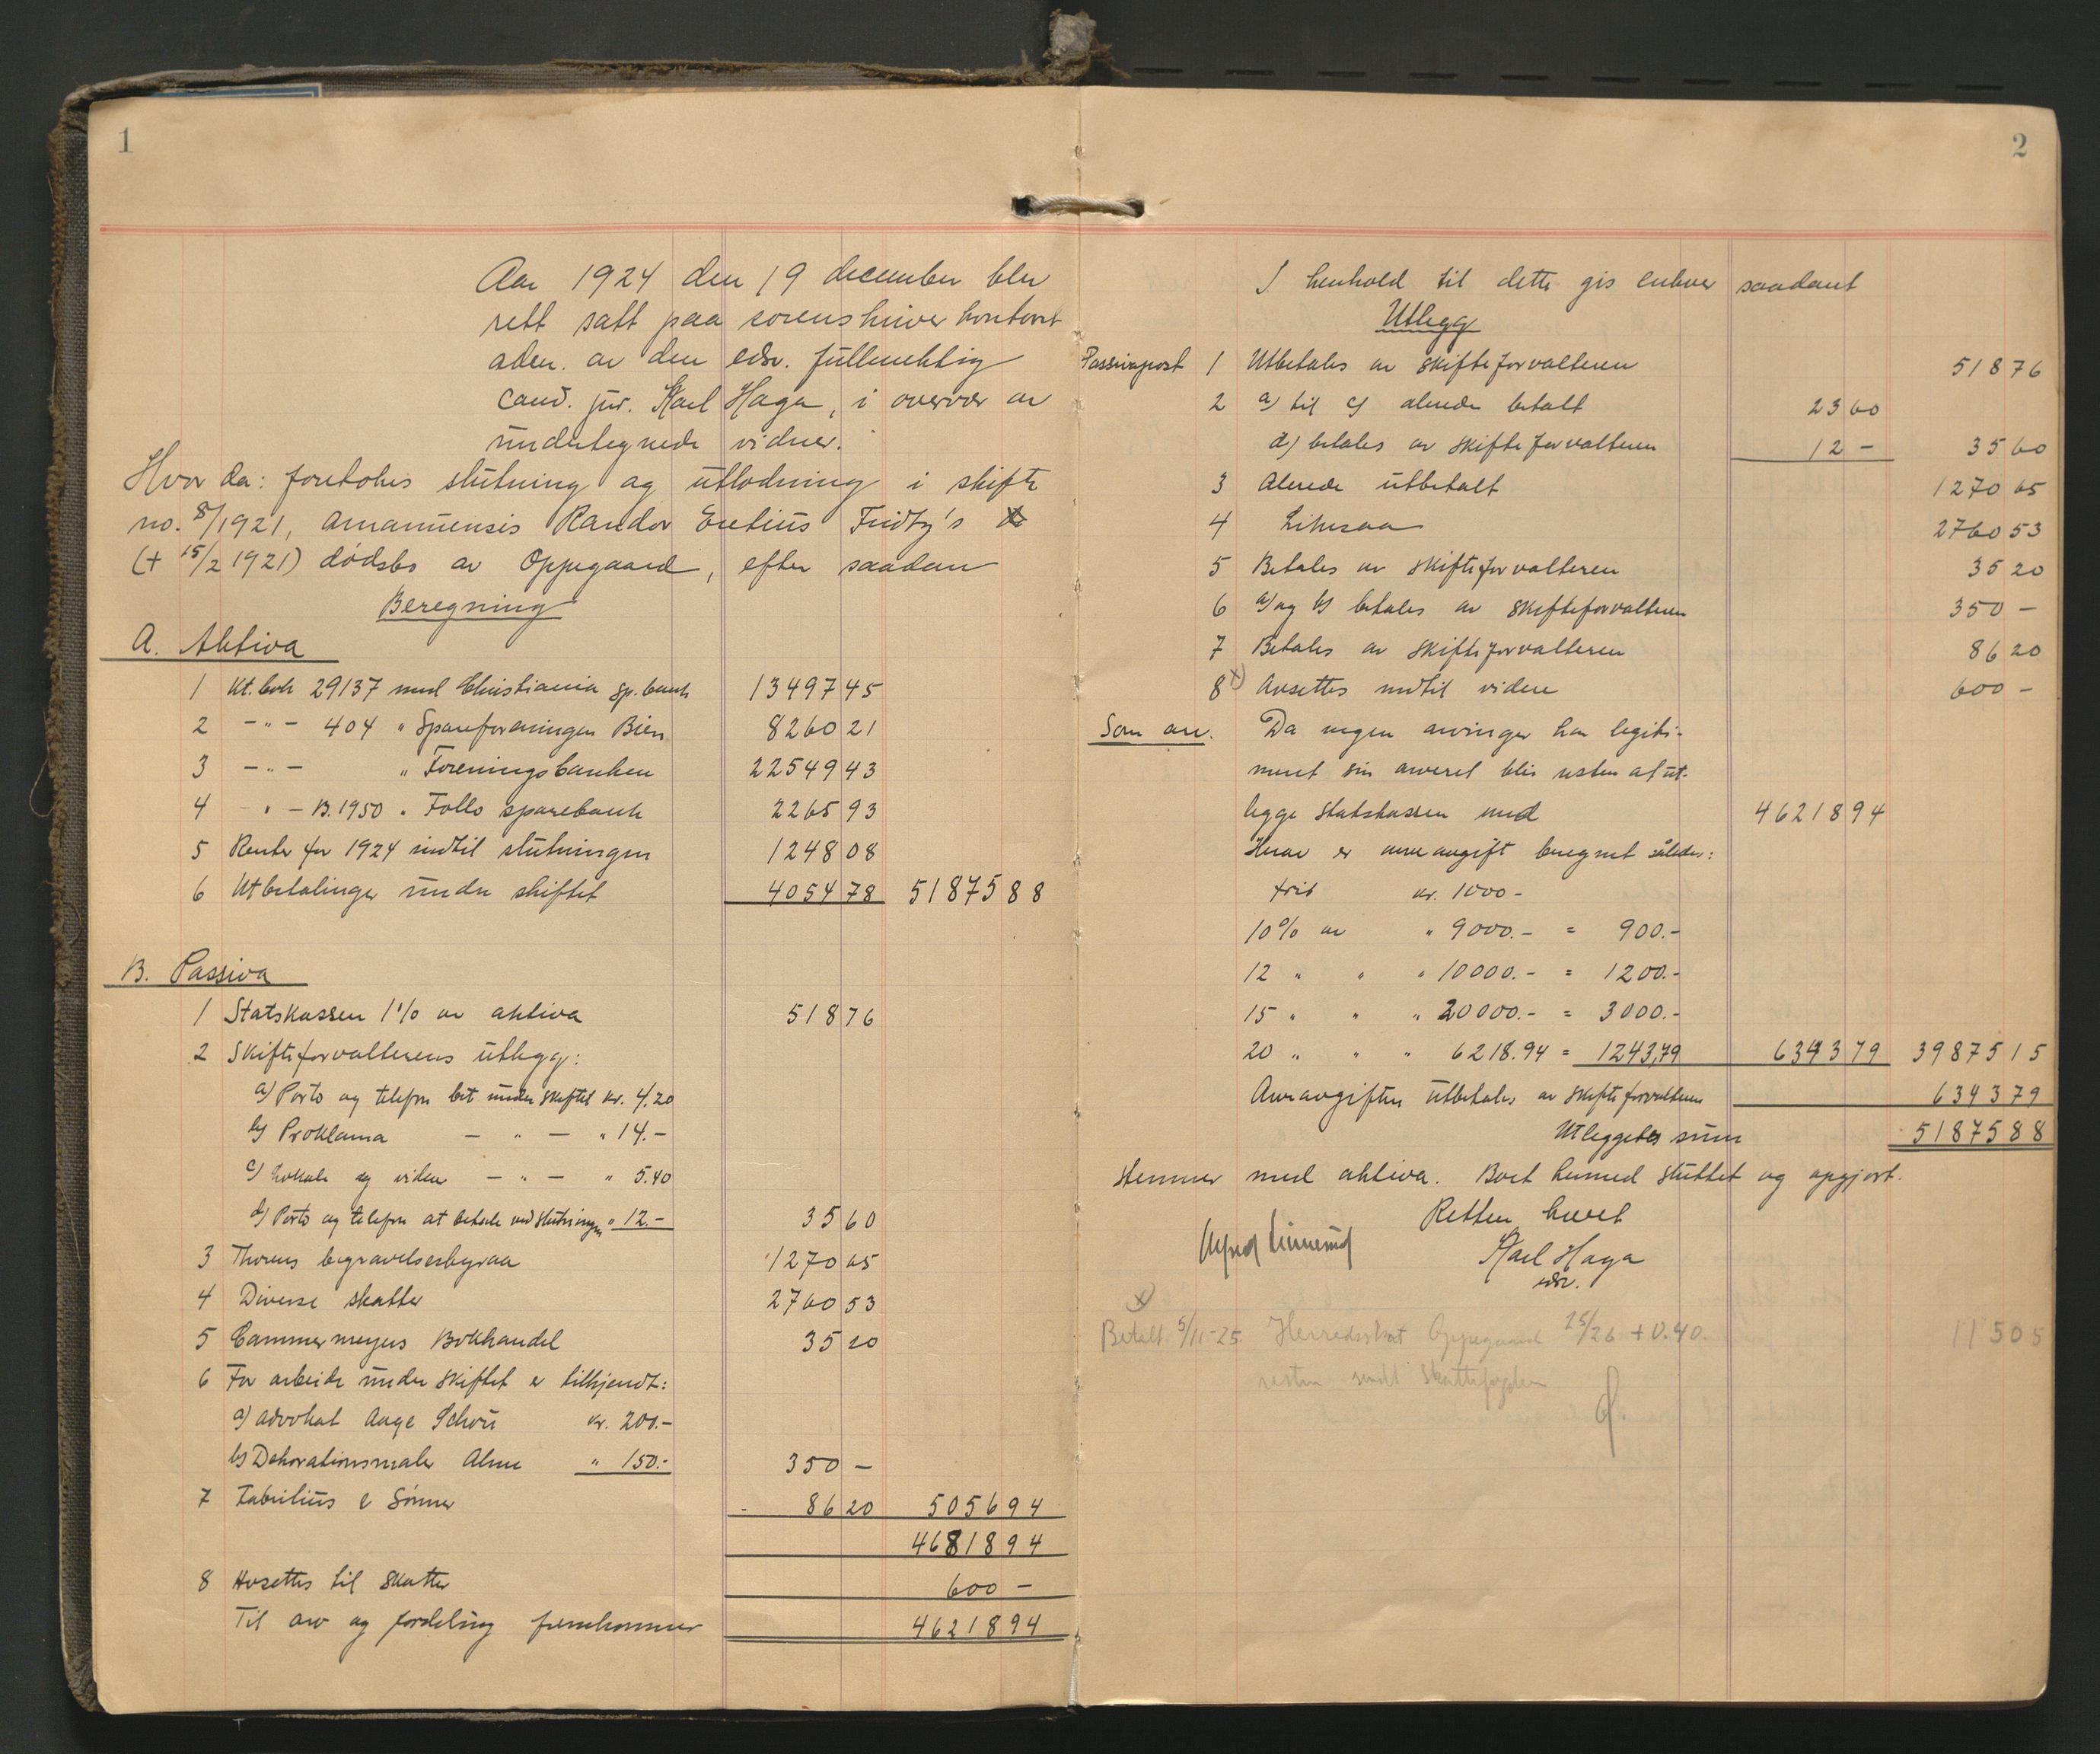 1
Aar 1924 den 19 december blev
rett satt paa sorenskriverkontoret
adm. av den edsv. fullmektig
cand. jur. Karl Haga, i overvær av
undertegnede vidner.
Hvor da: foretokes slutning og utlodning i skifte
no. 8/1921, amanuensis Randor Eutius Fridtz's
(+ 15/2 1921) dødsbo av Oppegaard, efter saadan
Beregning
A. Aktiva
1 Kt. bok 29137 med Christiania sp.bank 13497 45
2 -"- 404 " Spareforeningen Bien 8260 21
3 -"- " Foreningsbanken 22549 43
4 " - B.1950 " Follo sparebank 2265 93
5 Renter for 1924 indtil slutningen 1248 08
6 Utbetalinger under skiftet 4054 78 51875 88
B. Passiva
1 Statskassen 1% av aktiva 518 76
2 Skifteforvalterens utlegg:
a) Porto og telefon bet. under skiftet kr. 4,20
b) Proklama - " - " 14.-
c) Lokale og vidner - " - " 5.40
d) Porto og telefon at betale ved slutningen " 12.- 35 60
3 Thorens begravelsesbyraa 1270 65
4 Diverse skatter 2760 53
5 Cammermeyers Bokhandel 35 20
6 For arbeide under skiftet er tilkjendt:
a) advokat Aage Schou kr. 200.-
b) Dekorationsmaler Alme " 150.- 350 -
7 Fabritius & Sønner 86 20 5056 94
46818 94
8 Avsettes til skatter 600 -
Til arv og fordeling fremkommer 46218 94
2
I henhold til dette gis enhver saadant
Utlegg
Passivapost 1 Utbetales av skifteforvalteren 518 76
2 a) til c) alerede betalt 23 60
d) betales av skifteforvalteren 12 - 35 60
3 Alerede utbetalt 1270 65
4 Likesaa 2760 53
5 Betales av skifteforvalteren 35 20
6 a) og b) betales av skifteforvalteren 350 -
7 Betales av skifteforvalteren 86 20
8 x) Avsettes indtil videre 600 -
Som arv. Da ingen arvinger har legiti-
meret sin arveret blir resten at ut-
legge Statskassen med 46218 94
Herav er arveavgift beregnet således:
frit kr. 1000 -
10% av " 9000.- = 900.-
12 " " " 10000.- = 1200.-
15 " " " 20000.- = 3000.-
20 " " " 6218.94 = 1243,79 6343 79 39875 15
Arveavgiften utbetales av skifteforvalteren 6343 79
Utleggets sum 51875 88
stemmer med aktiva. Boet hermed sluttet og opgjort.
Retten hevet
Alfred Linnerud Karl Haga
edsv.
x)
Betalt 5/11-25 Herredsskat Oppegaard 25/26 + 0.40. 115 05
resten sendt Skattefogden